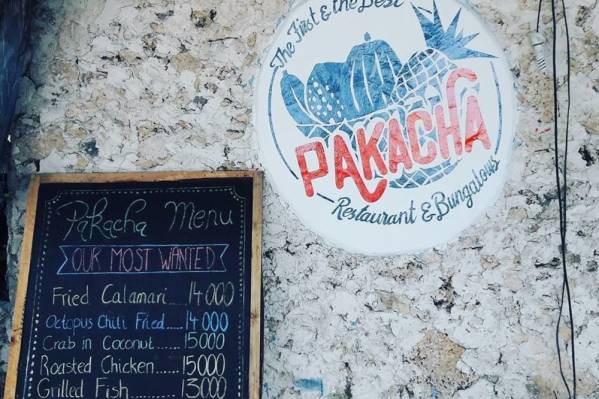 The First & the Best
PAKACHA
Restaurant & Bungalows
Pakacha Menu
OUR MOST WANTED
Fried Calamari....14000
Octopus Chili Fried.....14 000
Crab in Coconut......15000
Roasted Chicken.....15000
Grilled Fish......13000